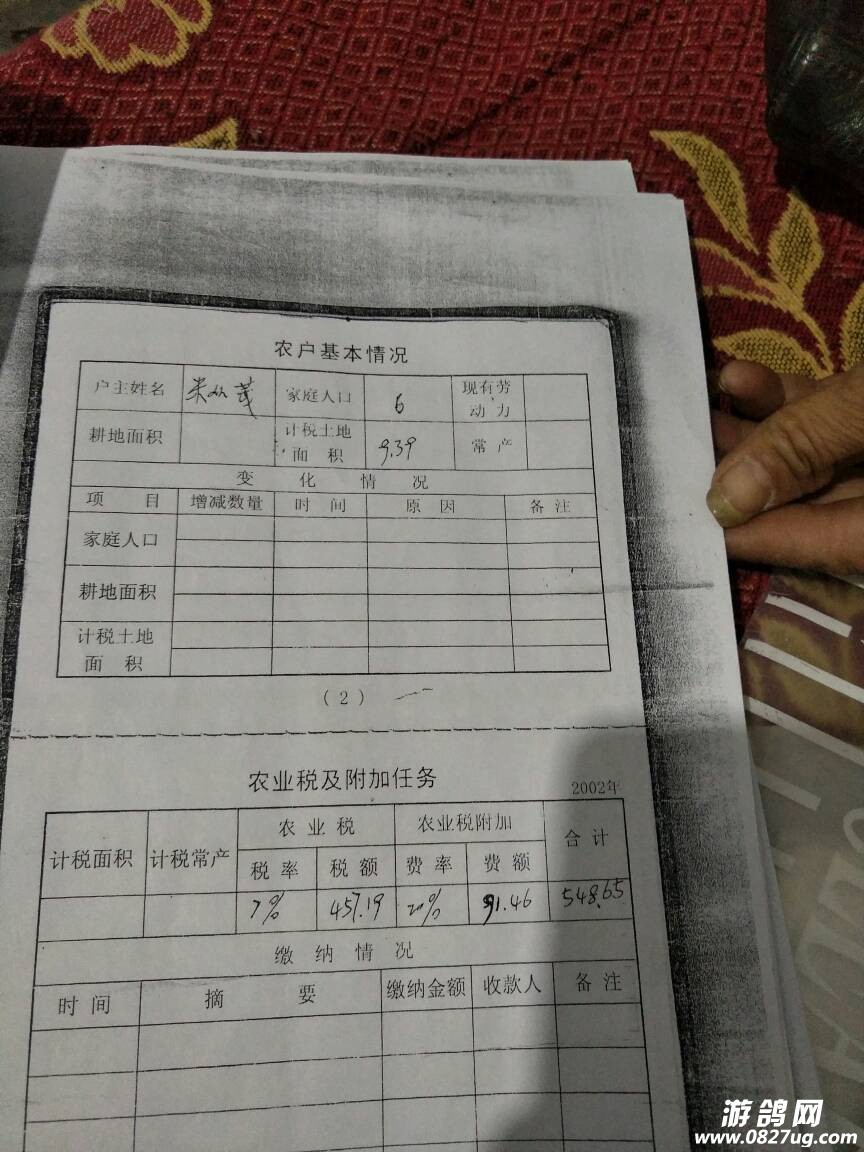 农户基本情况
户主姓名 家庭人口 6 现有劳动力
耕地面积 计税土地面积 9.39 常产
变化情况
项目 增减数量 时间 原因 备注
家庭人口
耕地面积
计税土地面积
(2)
农业税及附加任务 2002年
计税面积 计税常产 农业税 农业税附加 合计
税率 税额 费率 费额
7% 457.19 20% 91.46 548.65
缴纳情况
时间 摘要 缴纳金额 收款人 备注
游鸽网
www.0827ug.com